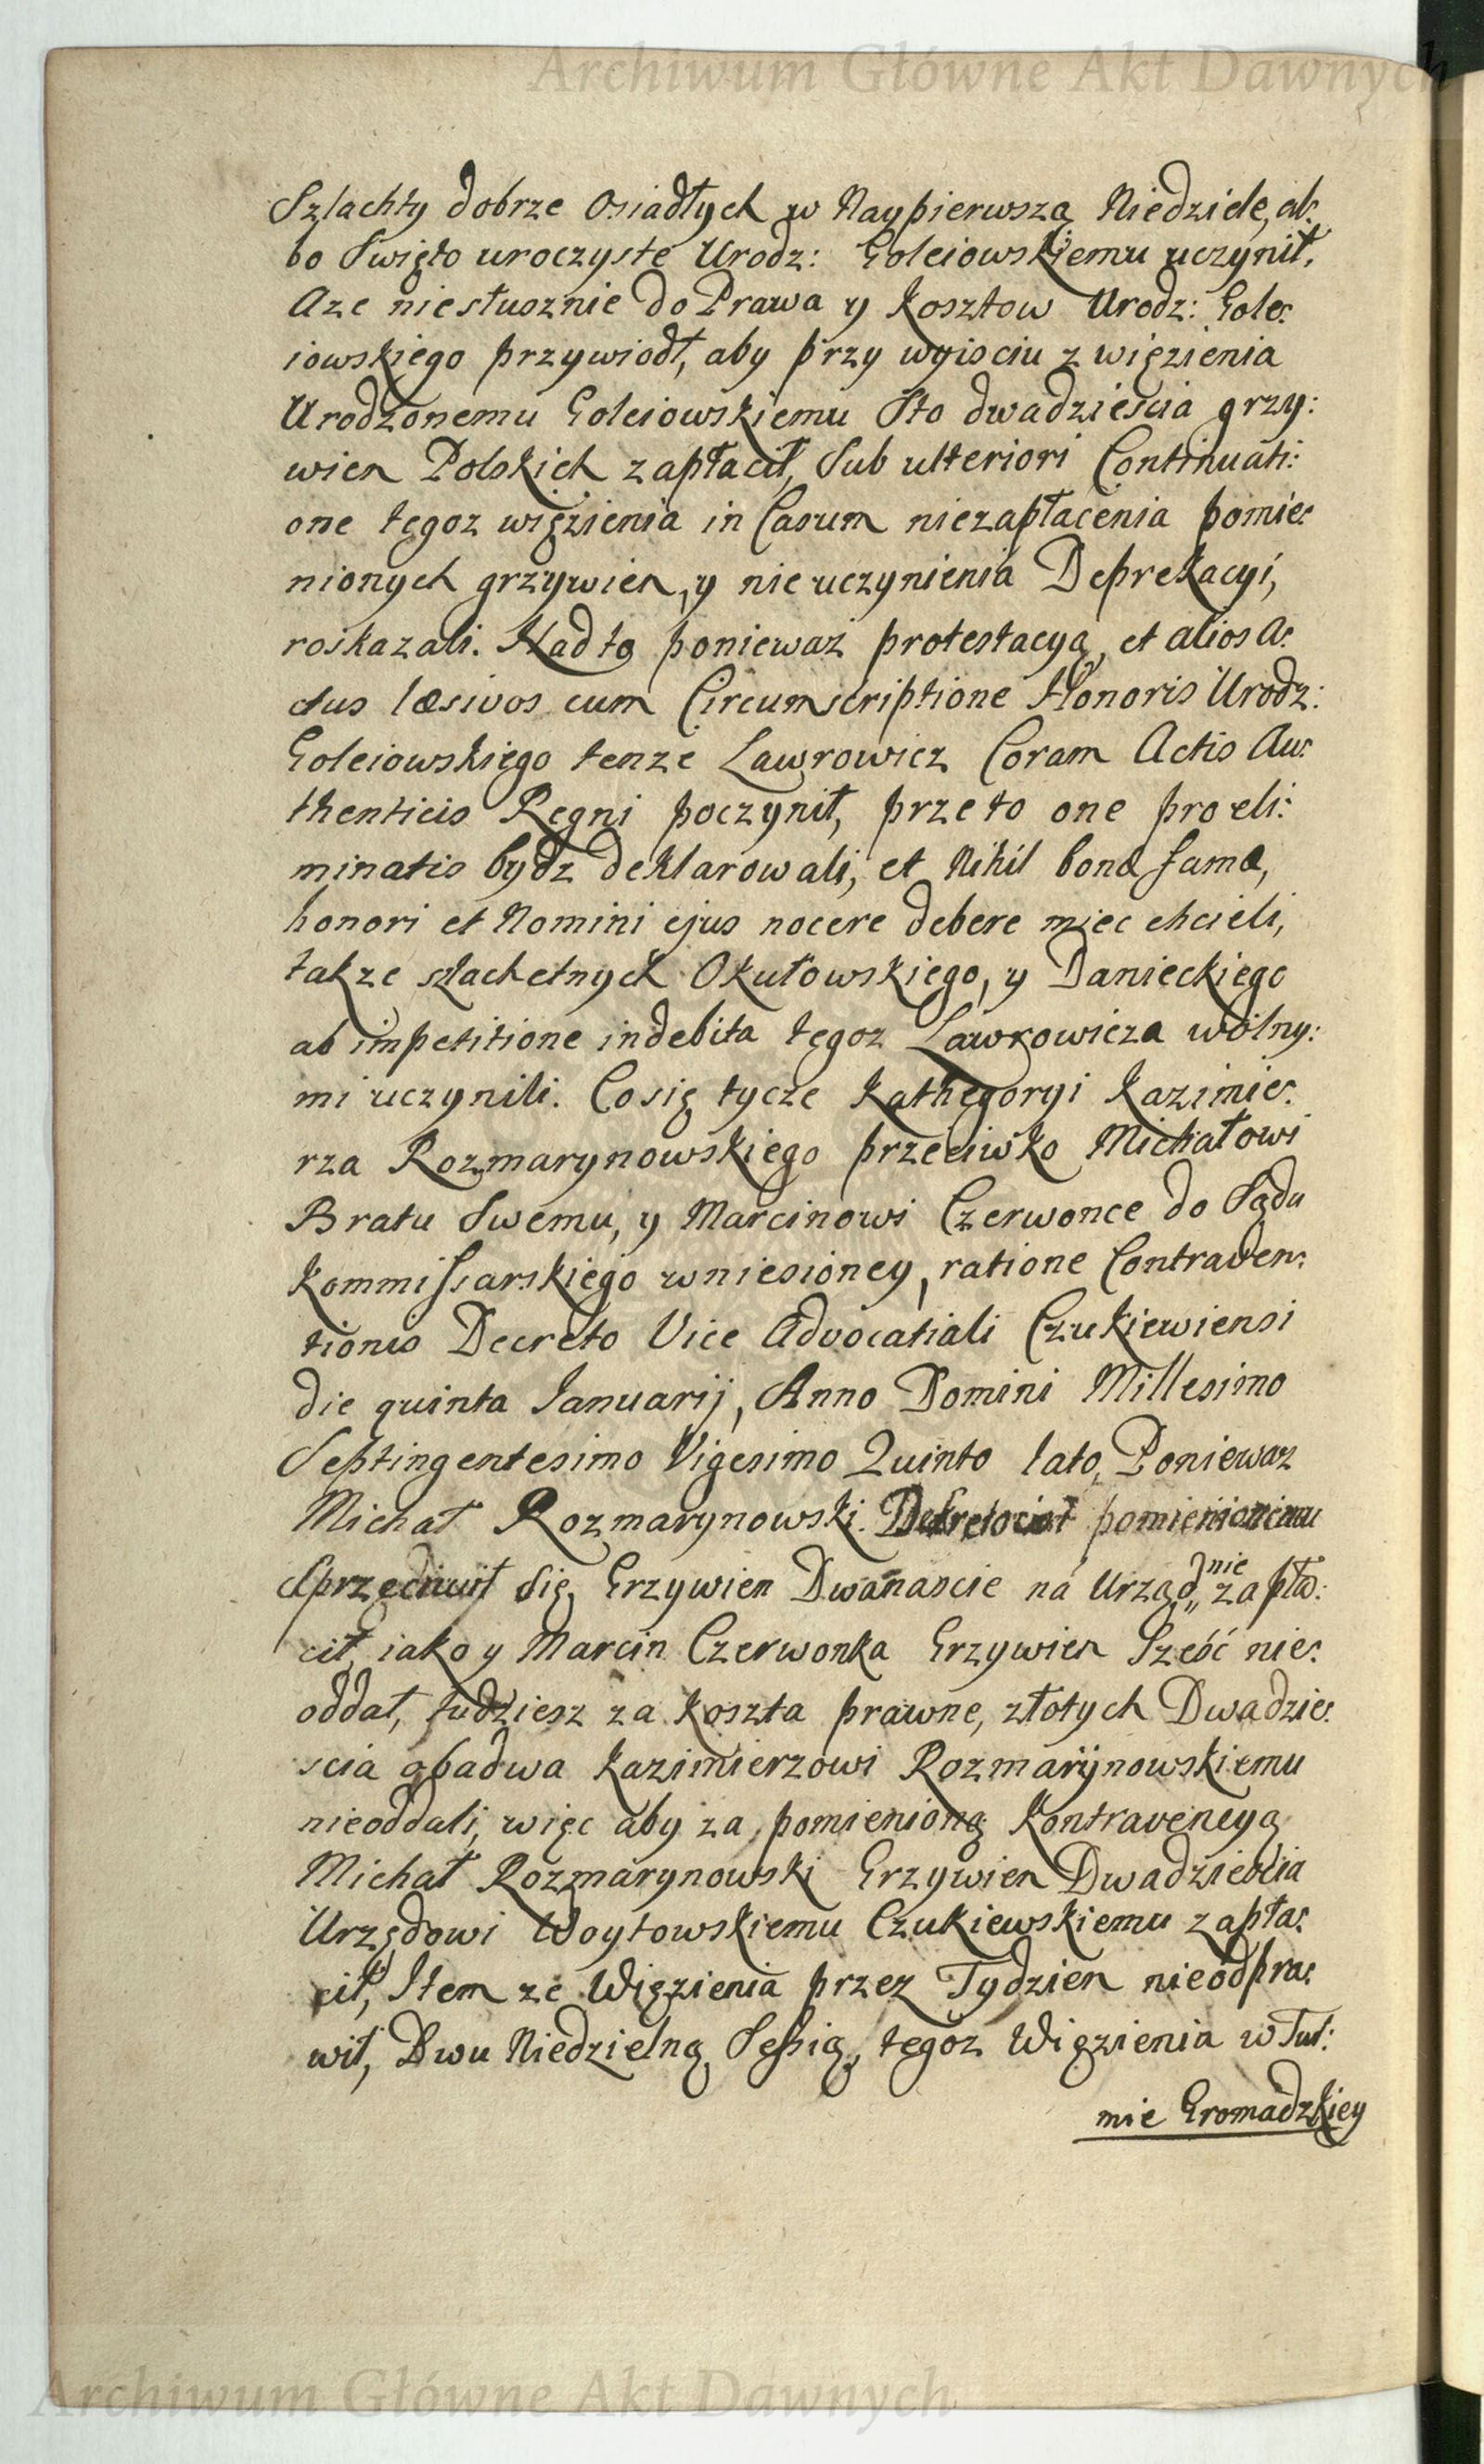 Archiwum Główne Akt Dawnych
Szlachty dobrze Osiadłych w Naypierwszą Niedzielę, al:
bo Swięto uroczyste Urodz: Goleiowskiemu uczynił,
Aze niesłusznie do Prawa y Kosztow Urodz: Gole:
iowskiego przywiodł, aby przy wyisciu z więzienia
Urodzonemu Goleiowskiemu Sto dwadzieścia grzy:
wien Polskich zapłacił, Sub ulteriori Continuati:
one tegoz więzienia in Casum niezapłacenia pomie:
nionych grzywien, y nie uczynienia Deprekacyi,
roskazali. Nad to ponieważ protestacyą, et alios A:
ctus læsivos cum Circumscriptione Honoris Urodz:
Goleiowskiego tenze Lawrowicz Coram Actis Au:
thenticis Regni poczynił, przeto one pro eli:
minatis bydz deklarowali, et Nihil bonæ famæ,
honori et Nomini ejus nocere debere miec chcieli,
takze szlachetnych Okułowskiego, y Danieckiego
ab impetitione indebita tegoz Lawrowicza wolny:
mi uczynili. Co się tycze Kathegoryi Kazimie:
rza Rozmarynowskiego przeciwko Michałowi
Bratu Swemu, y Marcinowi Czerwonce do Sądu
Kommissarskiego wniesioney, ratione Contraven:
tionis Decreto Vice Advocatiali Czukiewiensi
die quinta Januarij, Anno Domini Millesimo
Septingentesimo Vigesimo Quinto lato, Poniewaz
Michał Rozmarynowski Dekretowi pomienionemu
Sprzeciwił się, Grzywien Dwanascie ná Urząd,, nie zapła:
cił, iako y Marcin Czerwonka Grzywien Sześć nie:
oddał, tudziesz za koszta prawne, złotych Dwadzie:
scia obadwa Kazimierzowi Rozmarynowskiemu
nieoddali, więc aby za pomienioną Kontravencyą
Michał Rozmarynowski Grzywien Dwadzieścia
Urzędowi Woytowskiemu Czukiewskiemu zapła:
cił, Item ze Więzienia przez Tydzien nieodpra:
wił, Dwu Niedzielną Sessią, tegoz Więzienia w Tur:
mie Gromadzkiey
Archiwum Główne Akt Dawnych